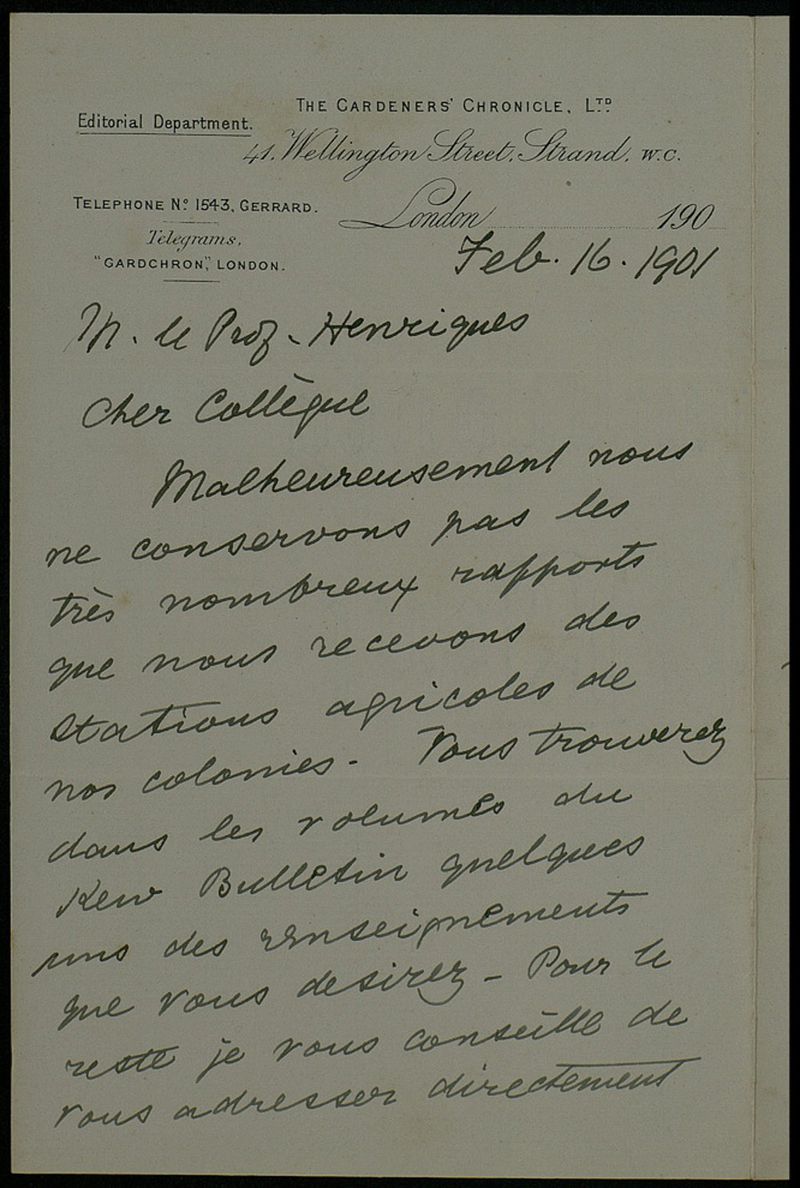 THE GARDENERS' CHRONICLE, LTD
Editorial Department.
41, Wellington Street, Strand, W.C.
TELEPHONE No. 1543, GERRARD.
London 190
Telegrams,
"GARDCHRON," LONDON.
Feb. 16. 1901
M. le Prof. Henriques
Cher Collègue
Malheureusement nous
ne conservons pas les
très nombreux rapports
que nous recevons des
stations agricoles de
nos colonies. Vous trouverez
dans les volumes du
Kew Bulletin quelques
uns des renseignements
que vous desirez - Pour le
reste je vous conseille de
vous adresser directement